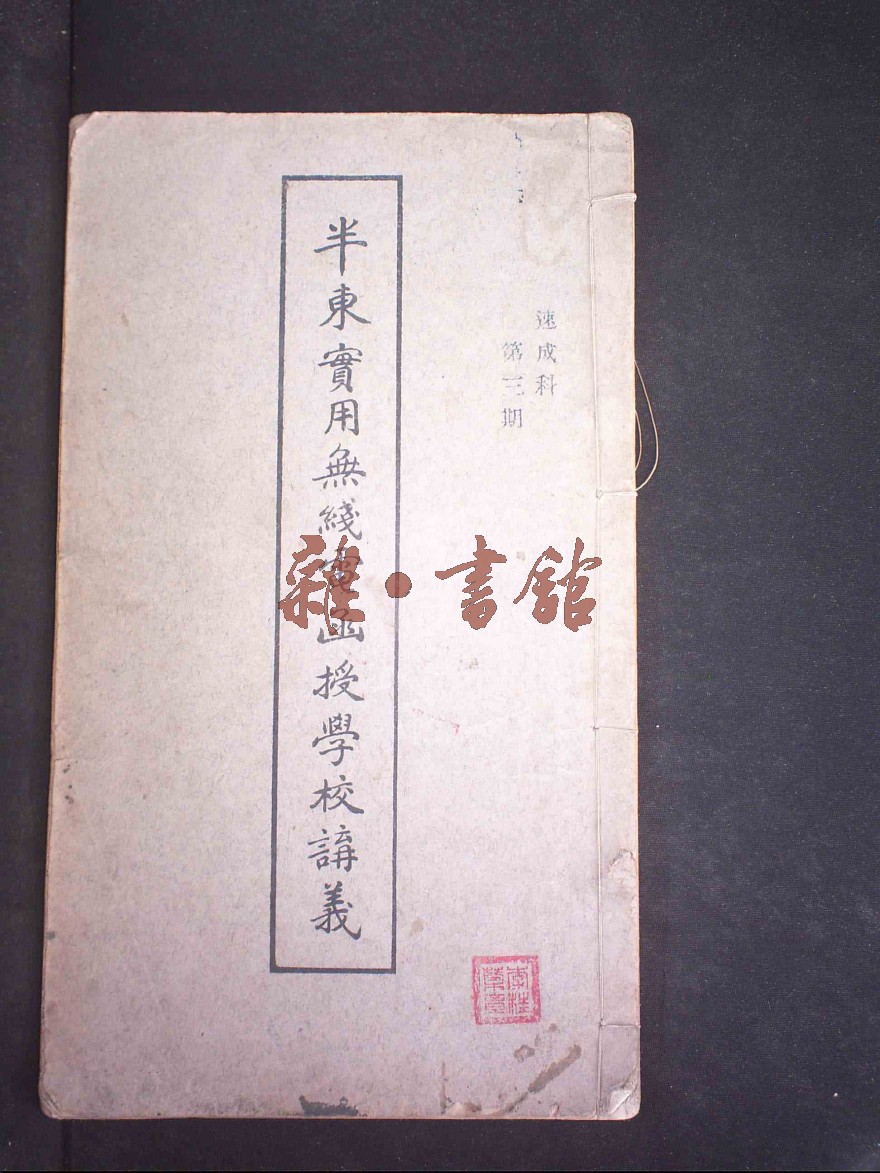 速成科
第三期
半東實用無綫電函授學校講義
雜·書館